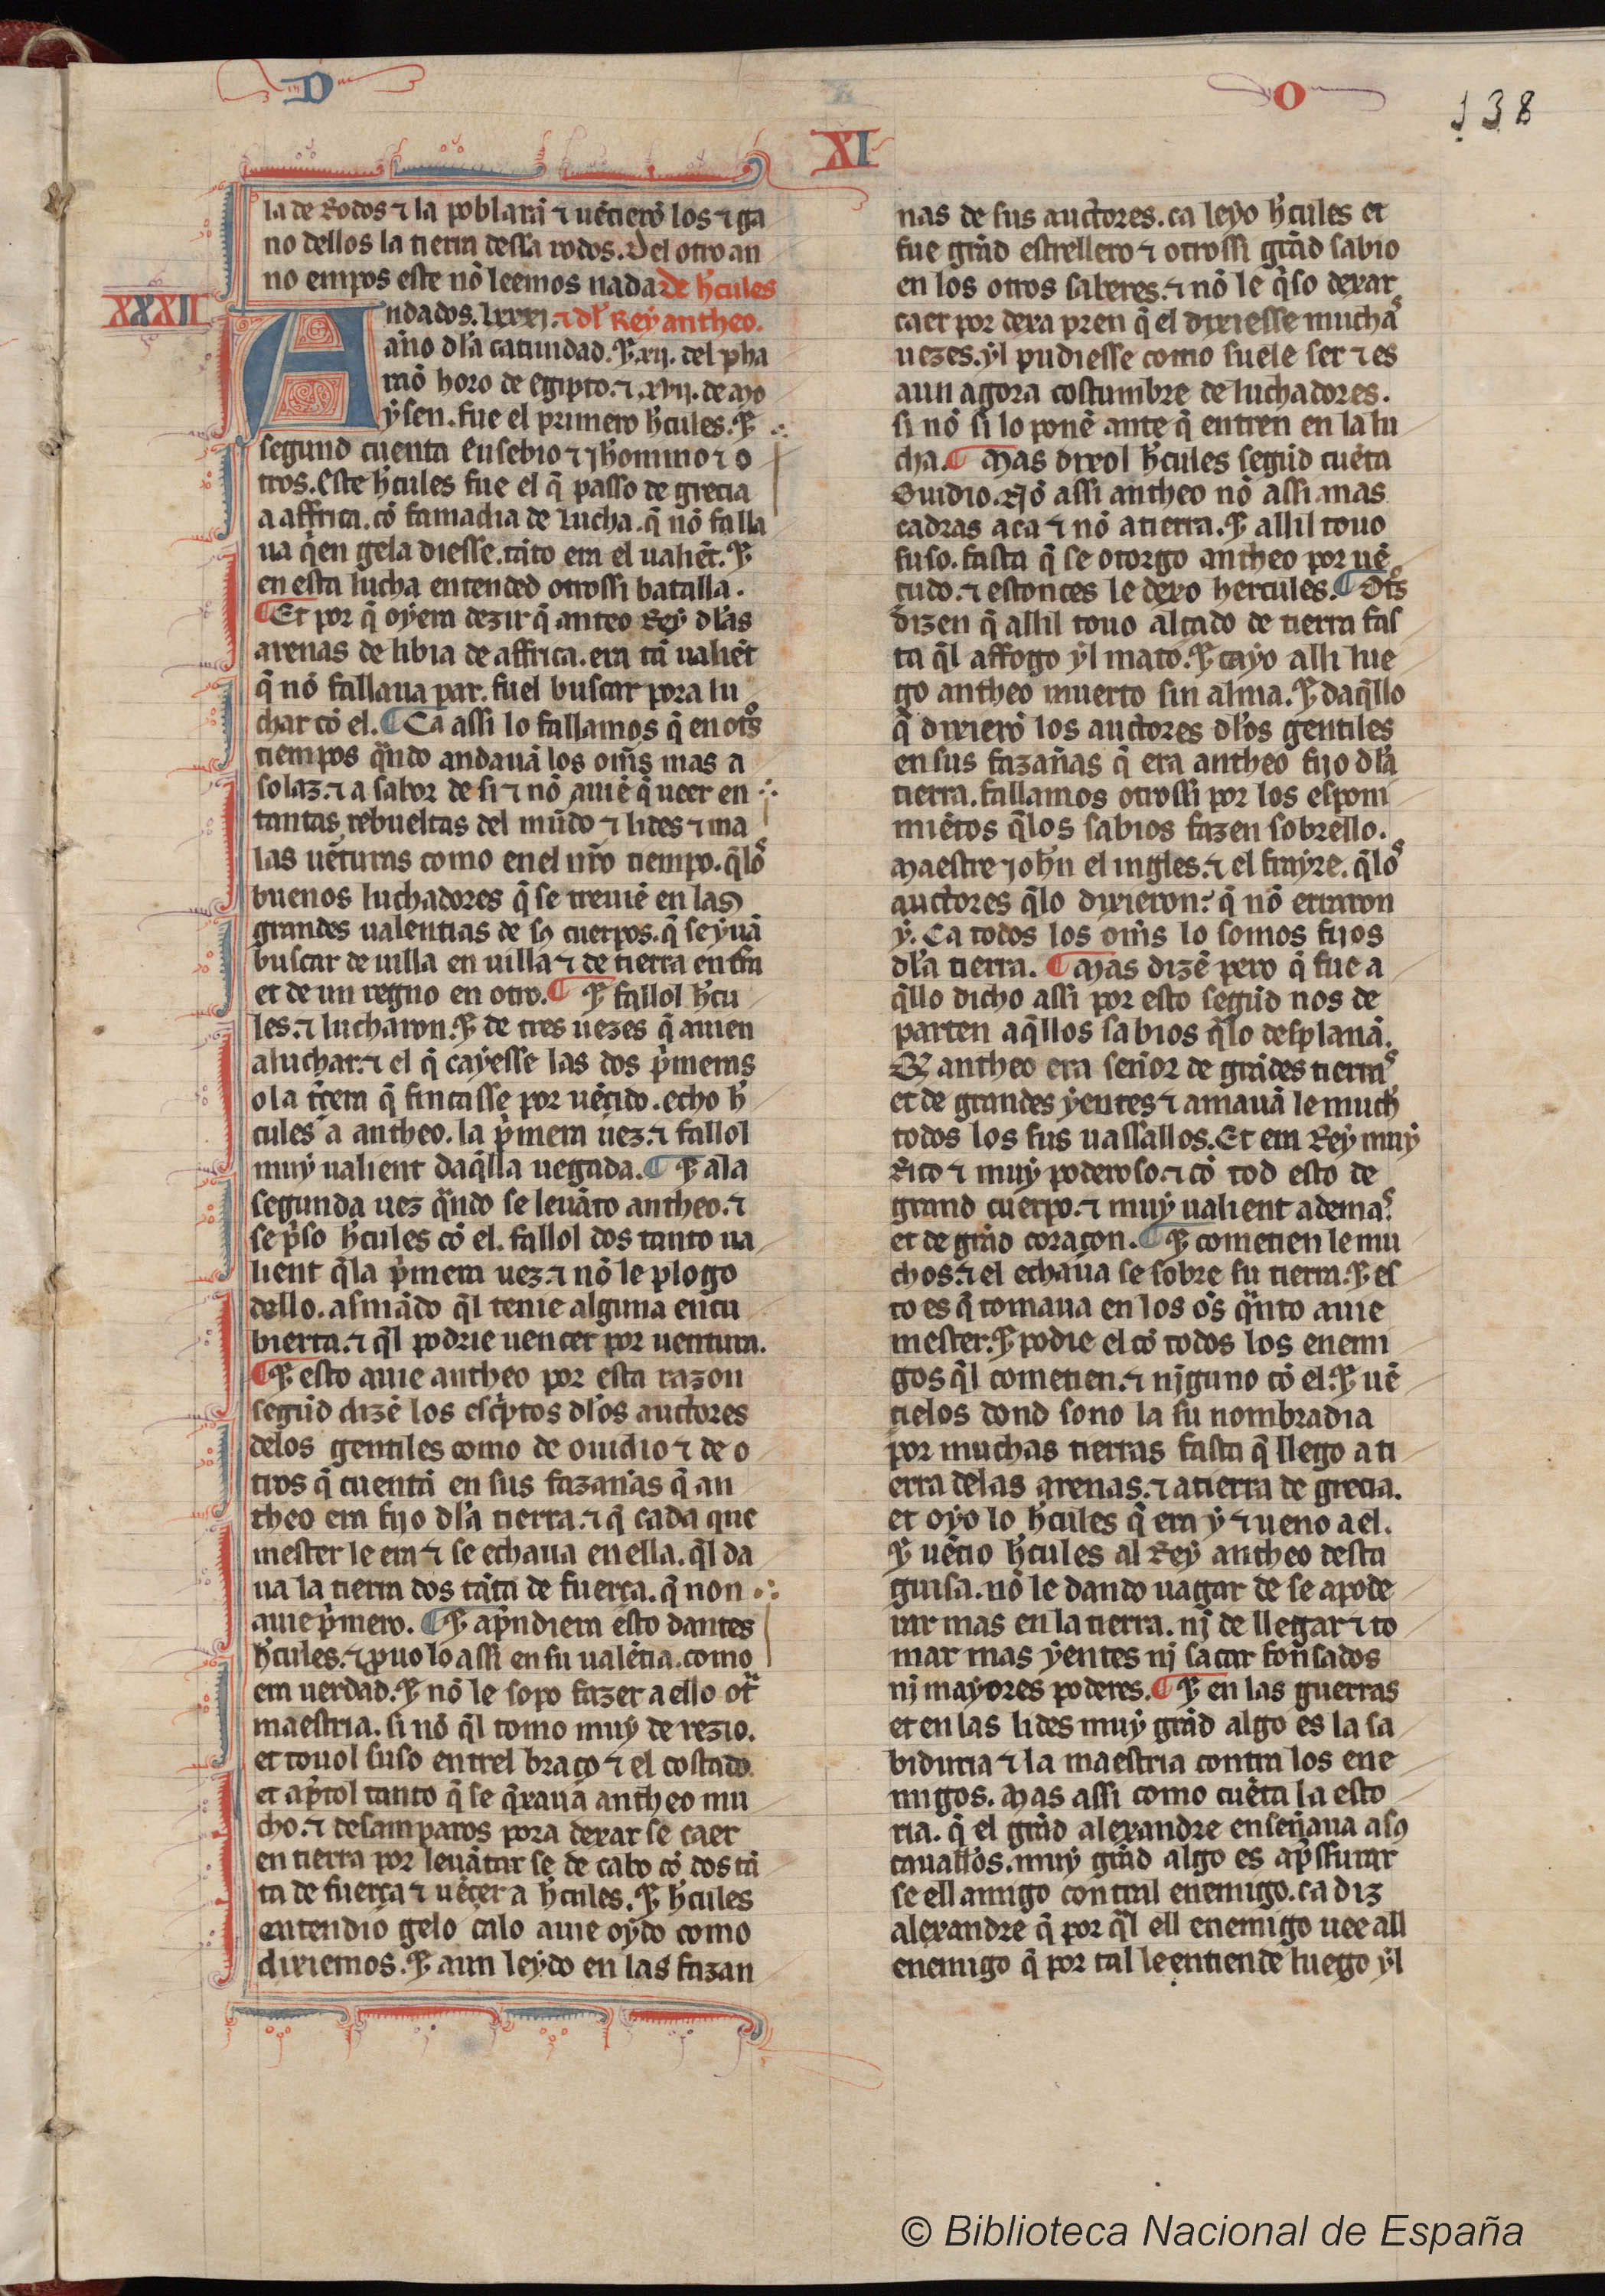 D
XI
O
138
la de Rodos ⁊ la poblarã ⁊ uẽcierõ los ⁊ ga
no dellos la tierra dessa rodos. Del otro an
no empos este nõ leemos nada de h̃cules
XXXII
Andados. lxxxj. ⁊ dl̃ Rey antheo.
año dl̃a catiuidad. ⁊ .xij. del pha
raõ horo de egipto. ⁊ .xvij. de mo
ysen. fue el primero h̃cules. ⁊
segund cuenta eusebio ⁊ jheronimo ⁊ o
tros. Este h̃cules fue el q̃ passo de grecia
a affrica. cõ famadia de lucha. q̃ nõ falla
ua q̃en gela diesse. tãto era el ualiẽt. ⁊
en esta lucha entended otrossi batalla.
¶ Et por q̃ oyera dezir q̃ anteo Rey dl̃as
arenas de libia de affrica. era tã ualiẽt
q̃ nõ fallaua par. fuel buscar pora lu
char cõ el. ¶ Ca assi lo fallamos q̃ en ot̃s
tiempos q̃ndo andauã los om̃s mas a
solaz. ⁊ a sabor de si ⁊ nõ auiẽ q̃ ueer en
tantas rebueltas del mũdo ⁊ lides ⁊ ma
las uẽturas como en el nr̃o tiempo. q̃ los
buenos luchadores q̃ se treuiẽ en las
grandes ualentias de sꝯ cuerpos. q̃ se yuã
buscar de uilla en uilla ⁊ de tierra en tr̃a
et de un regno en otro. ¶ ⁊ fallol h̃cu
les. ⁊ lucharon. ⁊ de tres uezes q̃ auien
a luchar. ⁊ el q̃ cayesse las dos p̃meras
o la t̃cera q̃ fincasse por uẽçido. echo h̃
cules a antheo. la p̃mera uez. ⁊ fallol
muy ualient daq̃lla uegada. ¶ ⁊ ala
segunda uez q̃ndo se leuãto antheo. ⁊
se p̃so h̃cules cõ el. fallol dos tanto ua
lient q̃ la p̃mera uez. ⁊ nõ le plogo
dello. asmãdo q̃l tenie alguna encu
bierta. ⁊ q̃l podrie uencer por uentura.
¶ ⁊ esto auie antheo por esta razon
segũd dizẽ los esc̃ptos dl̃os auctores
delos gentiles como de ouidio ⁊ de o
tros q̃ cuentã en sus fazañas q̃ an
theo era fijo dl̃a tierra. ⁊ q̃ cada que
mester le era ⁊ se echaua en ella. q̃l da
ua la tierra dos tãta de fuerça. q̃ non
auie p̃mero. ¶ ⁊ ap̃ndiera esto dantes
h̃cules. ⁊ p̃uo lo assi en su ualẽtia. como
era uerdad. ⁊ nõ le sopo fazer a ello ot̃
maestria. si nõ q̃l tomo muy de rezio.
et touol suso entrel braço ⁊ el costado.
et ap̃tol tanto q̃ se q̃xaua antheo mu
cho. ⁊ desamparos pora dexar se caer
en tierra por leuãtar se de cabo cõ dos tã
ta de fuerça ⁊ uẽçer a h̃cules. ⁊ h̃cules
entendio gelo calo auie oydo como
dixiemos. ⁊ aun leydo en las fazan
nas de sus auctores. ca leyo h̃cules et
fue grãd estrellero ⁊ otrossi grãd sabio
en los otros saberes. ⁊ nõ le q̃so dexar
caer por dexa pren q̃ el dixiesse muchas
uezes. yl pudiesse como suele ser ⁊ es
aun agora costumbre de luchadores.
si nõ si lo ponẽ ante q̃ entren en la lu
cha. ¶ Mas dixol h̃cules segũd cuẽta
Ouidio. Nõ assi antheo nõ assi. mas
cadras aca ⁊ nõ a tierra. ⁊ allil touo
suso. fasta q̃ se otorgo antheo por uẽ
cudo. ⁊ estonces le dexo hercules. ¶ Ot̃s
dizen q̃ allil touo alçado de tierra fas
ta q̃l affogo yl mato. ⁊ cayo alli lue
go antheo muerto sin alma. ⁊ daq̃llo
q̃ dixierõ los auctores dl̃os gentiles
en sus fazañas q̃ era antheo fijo dl̃a
tierra. fallamos otrossi por los esponi
miẽtos q̃ los sabios fazen sobrello.
Maestre joh̃n el ingles. ⁊ el frayre. q̃ los
auctores q̃ lo dixieron: q̃ nõ erraron
y. Ca todos los om̃s lo somos fijos
dl̃a tierra. ¶ Mas dizẽ pero q̃ fue a
q̃llo dicho assi por esto segũd nos de
parten aq̃llos sabios q̃ lo desplanã.
Q̃ antheo era señor de grãdes tierras
et de grandes yentes ⁊ amauã le much̃
todos los sus uassallos. Et era Rey muy
Rico ⁊ muy poderoso. ⁊ cõ tod esto de
grand cuerpo. ⁊ muy ualient ademas.
et de grãd coraçon. ¶ ⁊ cometien le mu
chos. ⁊ el echaua se sobre su tierra. ⁊ es
to es q̃ tomaua en los om̃s q̃nto auie
mester. ⁊ podie el cõ todos los enemi
gos q̃l cometien. ⁊ njguno cõ el. ⁊ uẽ
cielos dond sono la su nombradia
por muchas tierras fasta q̃ llego a ti
erra delas arenas. ⁊ a tierra de grecia.
et oyo lo h̃cules q̃ era y ⁊ ueno a el.
⁊ uẽcio h̃cules al Rey antheo desta
guisa. nõ le dando uagar de se apode
rar mas en la tierra. nj de llegar ⁊ to
mar mas yentes nj sacar fonsados
nj mayores poderes. ¶ ⁊ en las guerras
et en las lides muy grãd algo es la sa
biduria ⁊ la maestria contra los ene
migos. Mas assi como cuẽta la esto
ria. q̃ el grãd alexandre enseñaua a sꝯ
cauall̃os. muy grãd algo es ap̃ssurar
se ell amigo contral enemigo. ca diz
alexandre q̃ por q̃l ell enemigo uee all
enemigo q̃ por tal le entiende luego yl
© Biblioteca Nacional de España